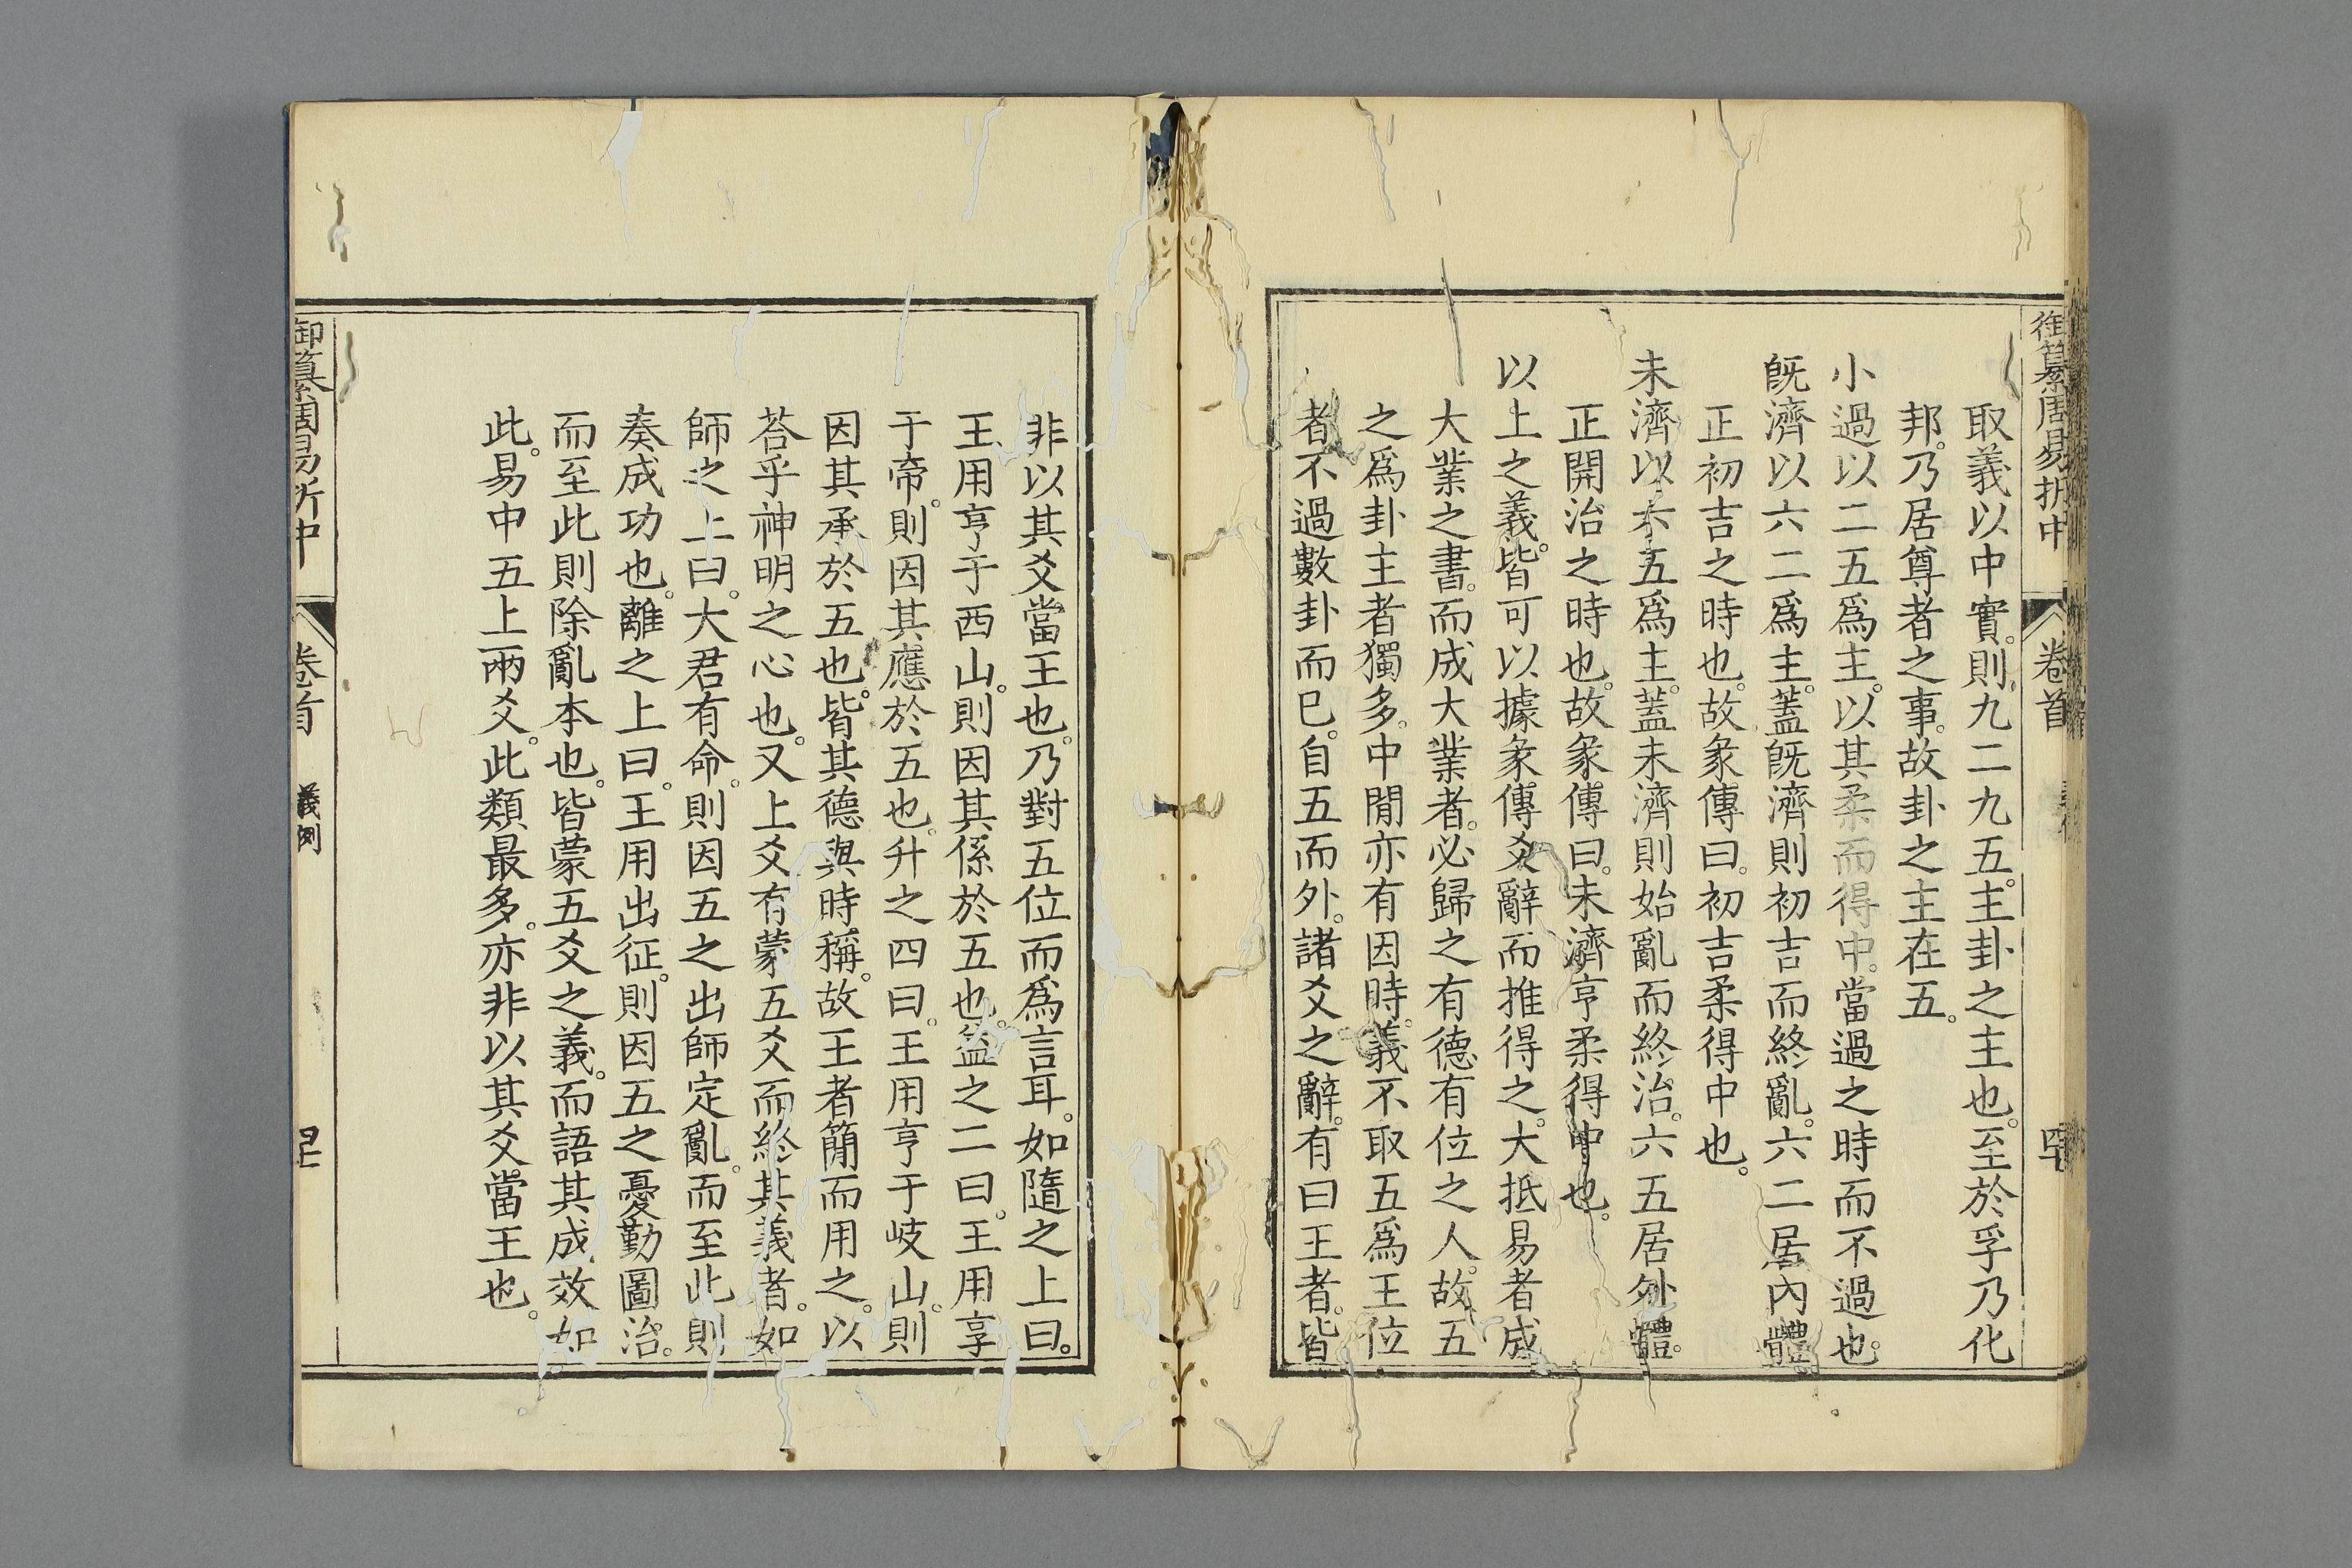 御纂周易折中 卷首
取義以中實。則九二九五。主卦之主也。至於孚乃化
邦。乃居尊者之事。故卦之主在五。
小過以二五為主。以其柔而得中。當過之時而不過也。
旣濟以六二為主。蓋旣濟則初吉而終亂。六二居內體。
正初吉之時也。故彖傳曰。初吉柔得中也。
未濟以六五為主。蓋未濟則始亂而終治。六五居外體。
正開治之時也。故彖傳曰。未濟亨柔得中也。
以上之義。皆可以據彖傳爻辭而推得之。大抵易者成
大業之書。而成大業者。必歸之有德有位之人。故五
之為卦主者獨多。中閒亦有因時義不取五為王位
者。不過數卦而已。自五而外。諸爻之辭。有曰王者。皆
非以其爻當王也。乃對五位而為言耳。如隨之上曰。
王用亨于西山。則因其係於五也。益之二曰。王用享
于帝。則因其應於五也。升之四曰。王用亨于岐山。則
因其承於五也。皆其德與時稱。故王者簡而用之。以
荅乎神明之心也。又上爻有蒙五爻而終其義者。如
師之上曰。大君有命。則因五之出師定亂。而至此則
奏成功也。離之上曰。王用出征。則因五之憂勤圖治。
而至此則除亂本也。皆蒙五爻之義。而語其成效如
此。易中五上兩爻。此類最多。亦非以其爻當王也。
御纂周易折中 卷首 義例